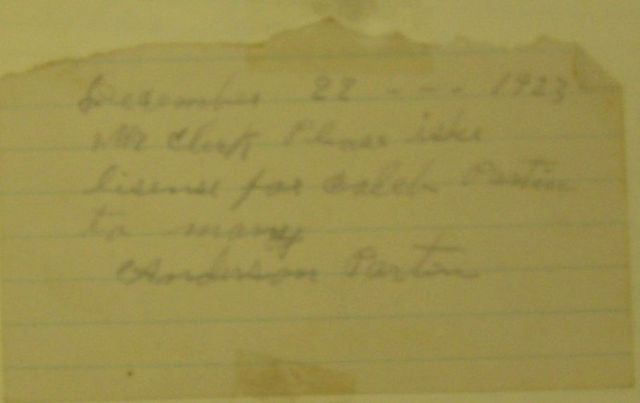 Desember 22 - - - 1923
Mr Clerk Pleas isku
lisense for Caleb Partin
to marry
Anderson Partin